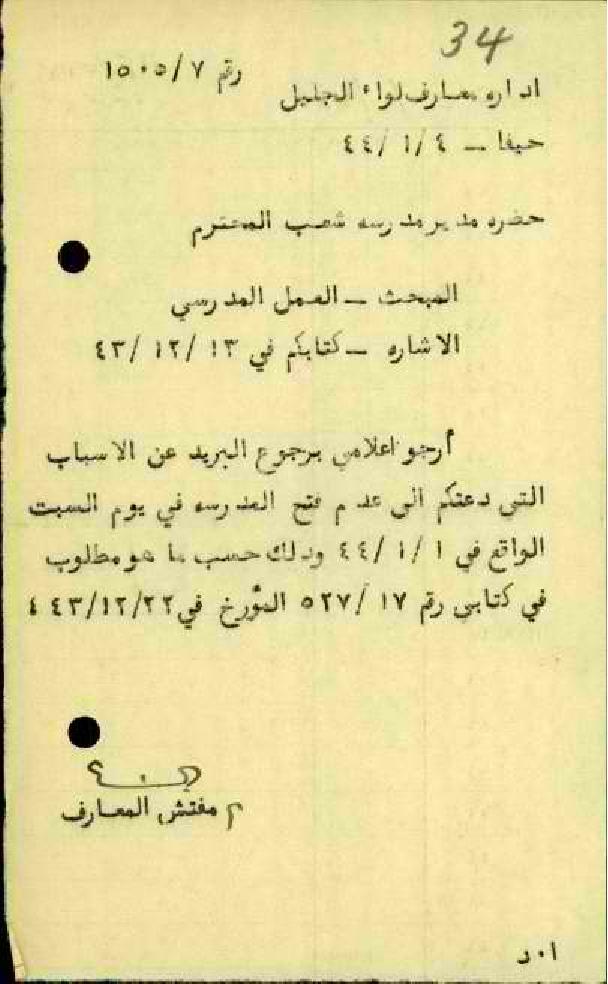 34
رقم ٧/١٥٠٥
اداره معارف لواء الجليل
حيفا – ٤ /١ /٤٤
حضره مدير مدرسه شعب المحترم
المبحث – العمل المدرسي
الاشاره – كتابكم في ١٣ /١٢ /٤٣
أرجو اعلامي برجوع البريد عن الاسباب
التي دعتكم الى عدم فتح المدرسه في يوم السبت
الواقع في ١ /١ /٤٤ وذلك حسب ما هو مطلوب
في كتابي رقم ١٧ /٥٢٧ المؤرخ في ٢٢/١٢/٤٣ ؛
م مفتش المعارف
ا٠د